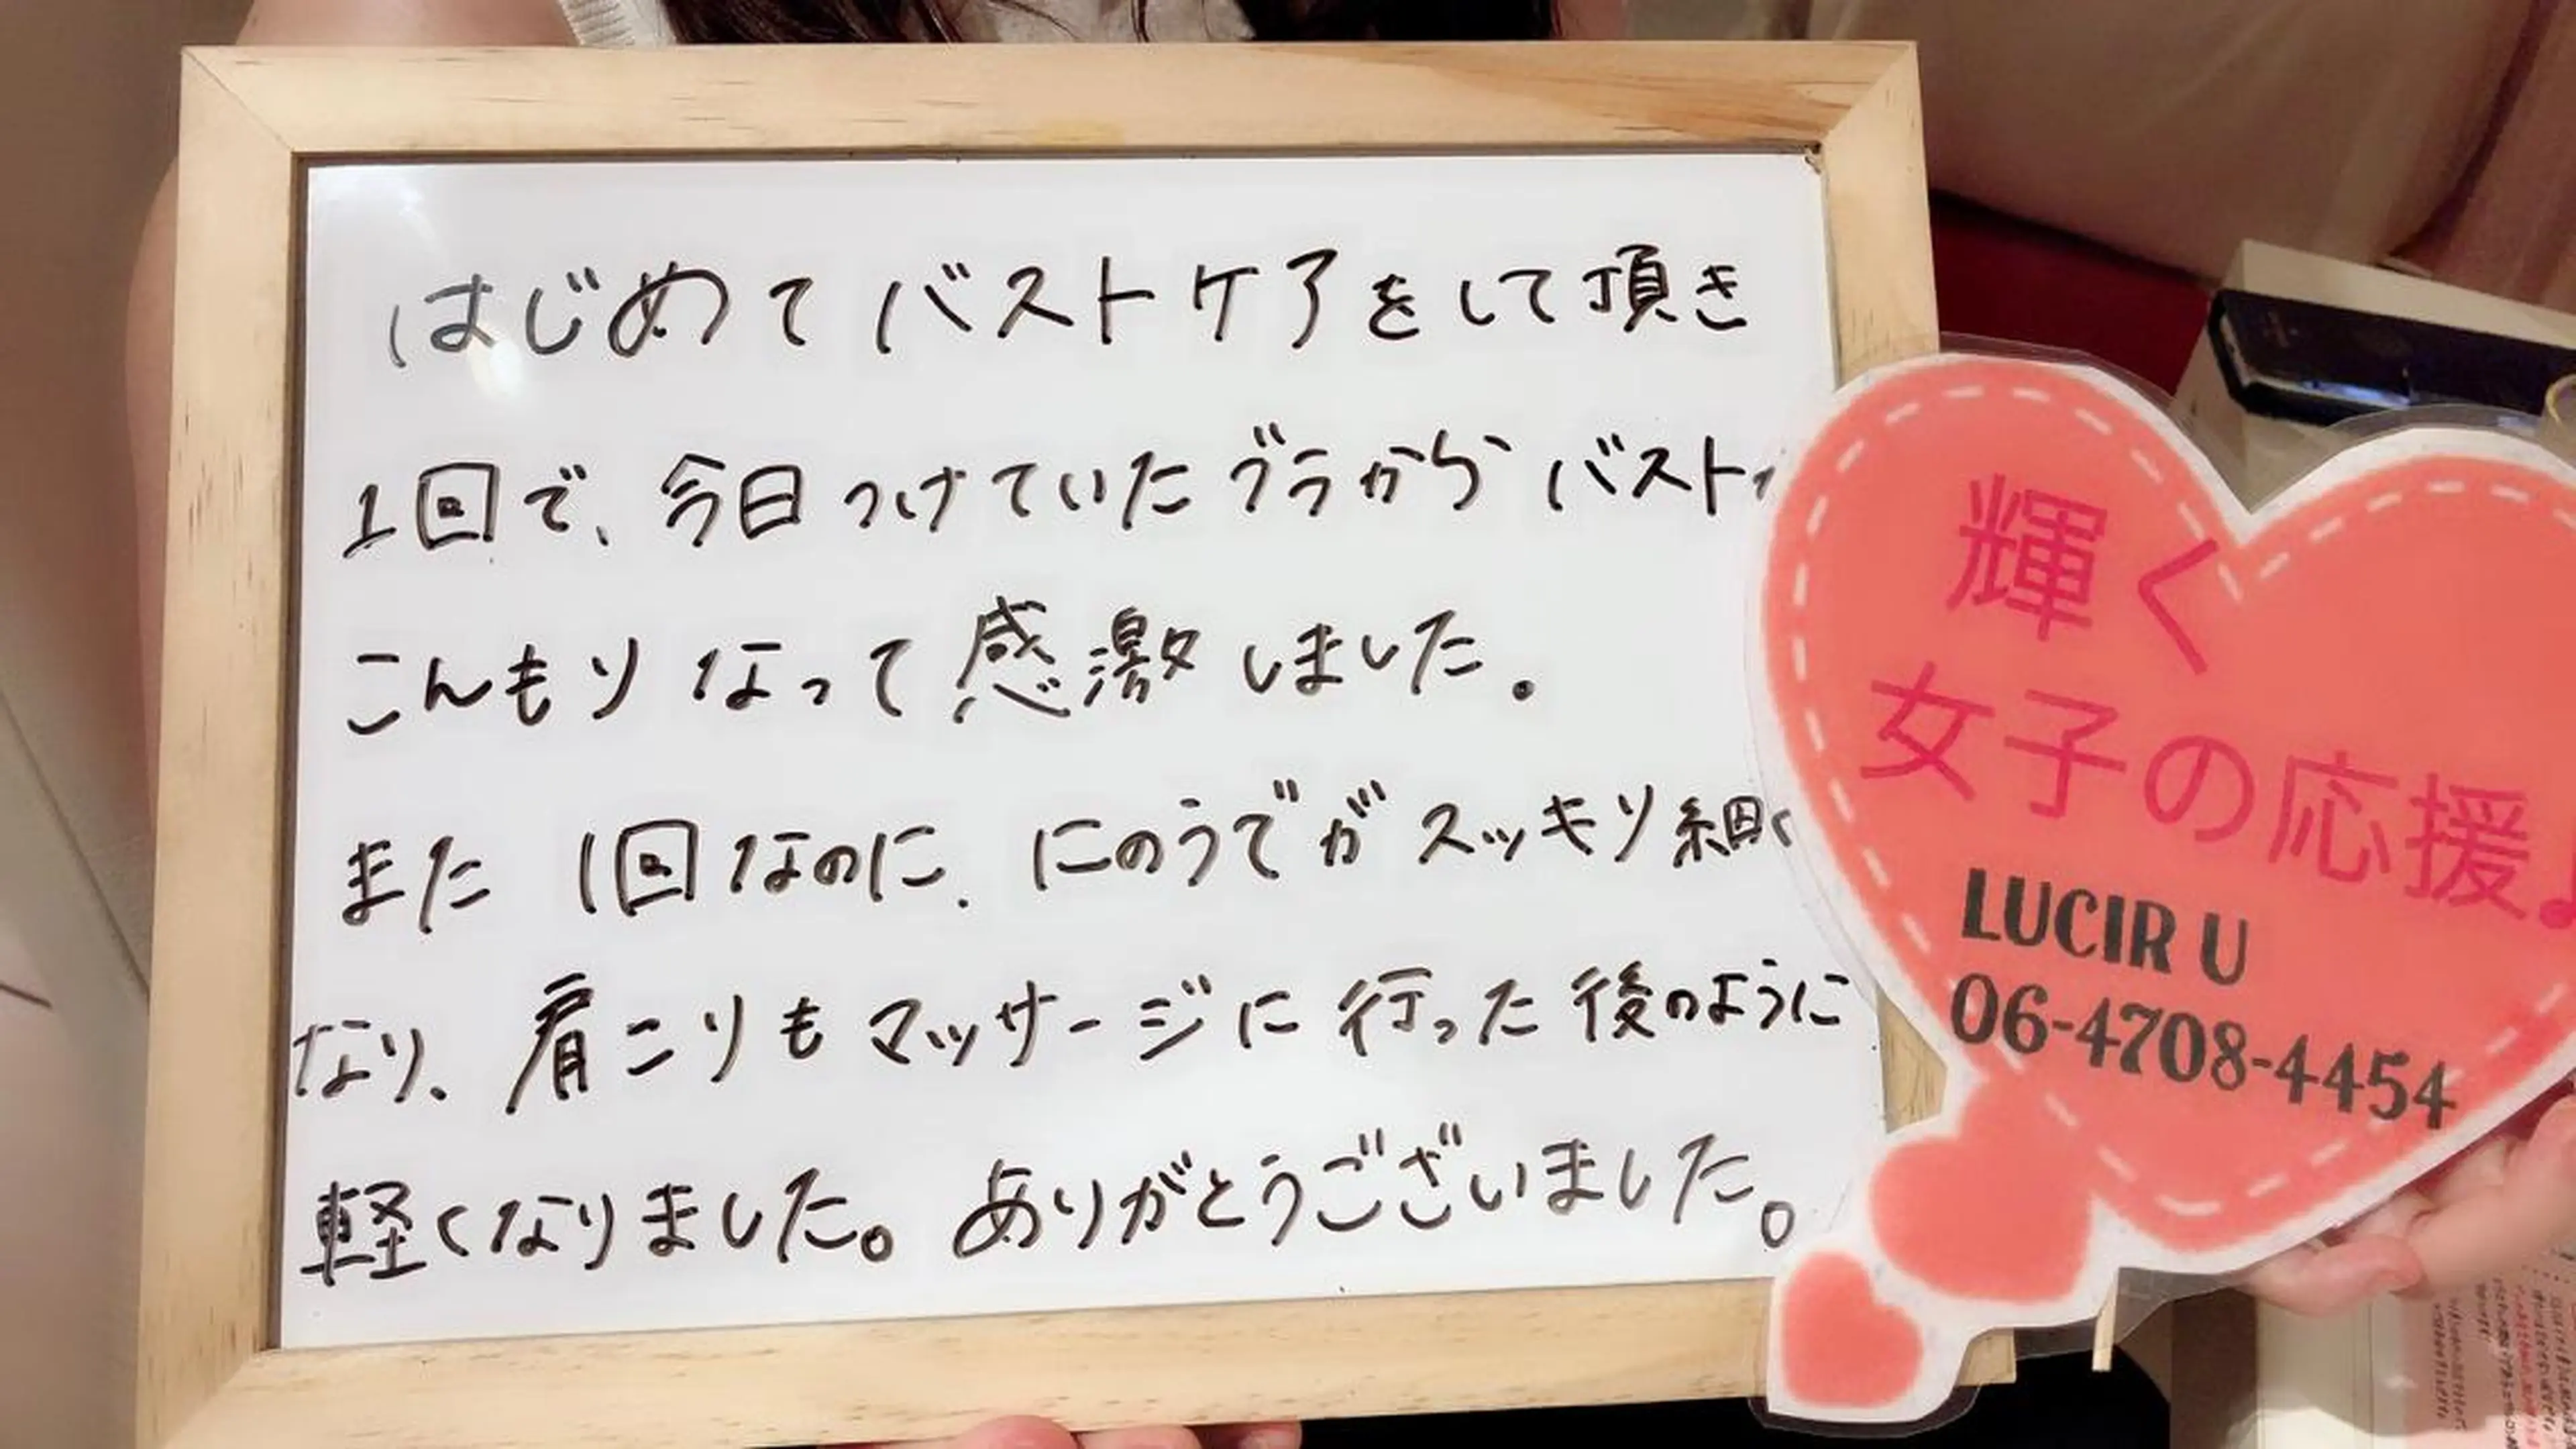 はじめてバストケアをして頂き
1回で、今日つけていたブラからバスト
こんもりなって感激しました。
また 1回なのに、にのうでがスッキリ細く
なり、肩こりもマッサージに行った後のように
軽くなりました。ありがとうございました。
輝く
女子の応援♪
LUCIR U
06-4708-4454